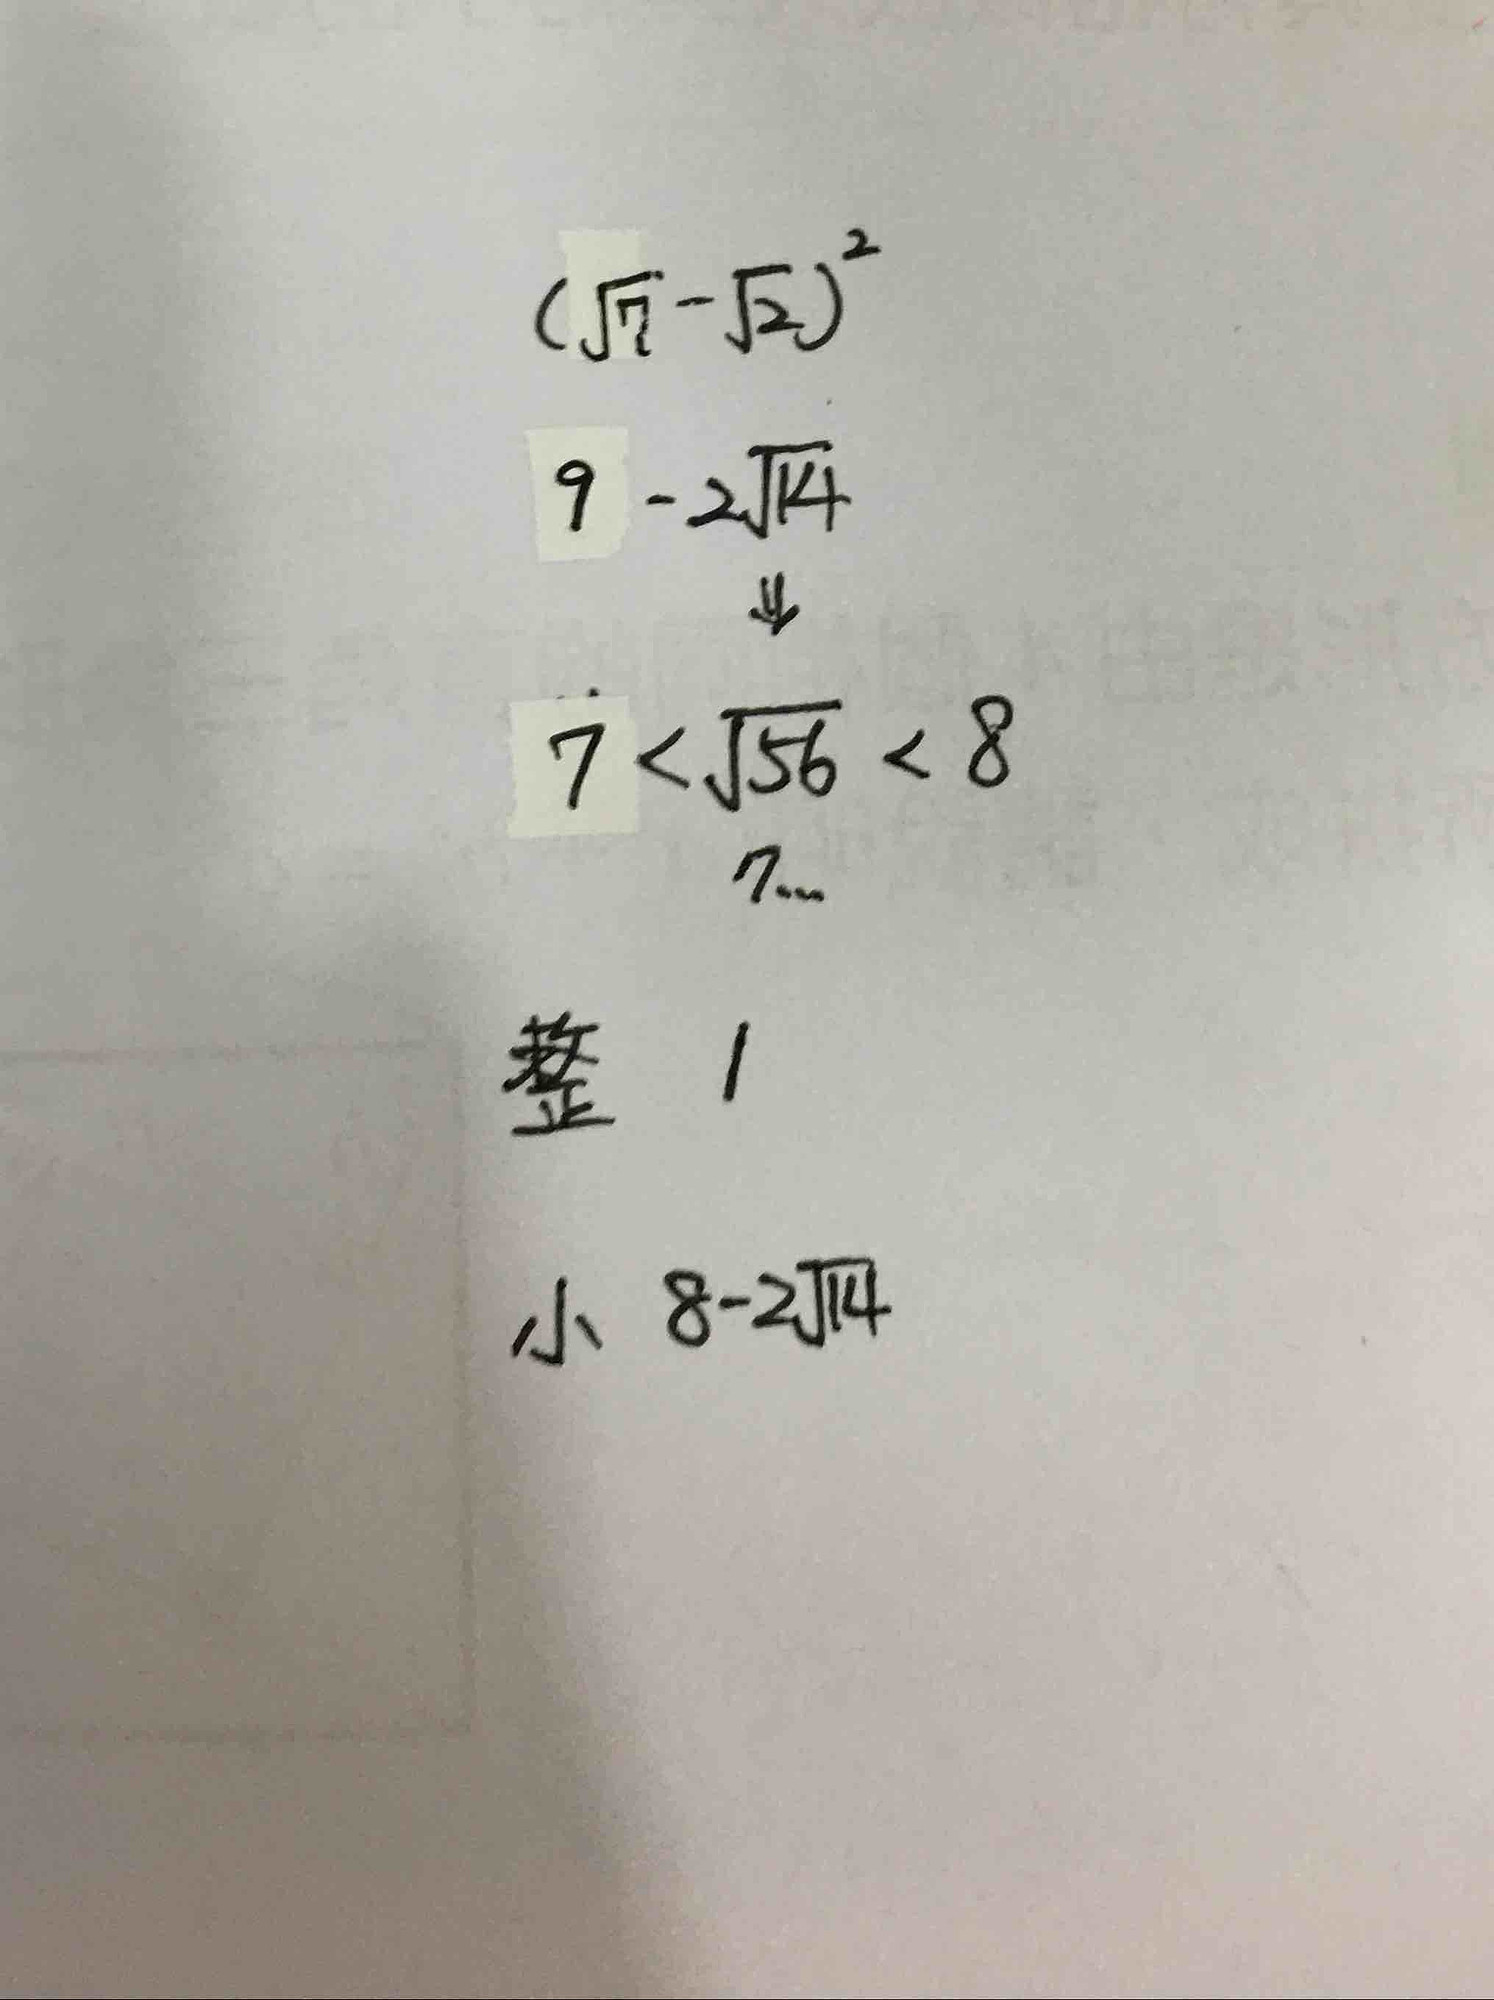 (√7-√2)²
9-2√14
⇓
7<√56<8
7...
整 1
小 8-2√14